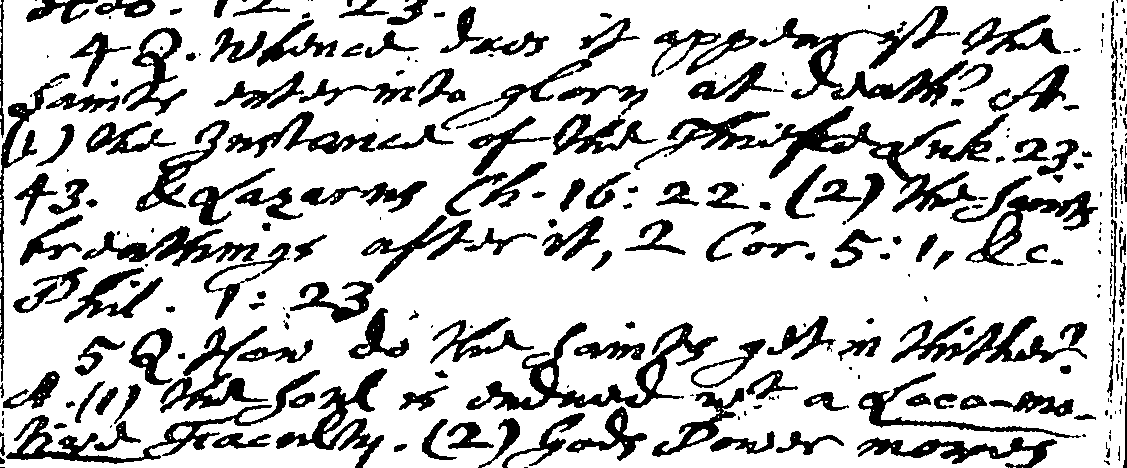 12: 23.
4 Q. Whence does it appear yt the
Saints enter into glory at death? A.
(1) the Instance of the Thiefe Luk. 23:
43. & Lazarus Ch. 16: 22. (2) the Saints
breathings after it, 2 Cor. 5: 1, &c.
Phil. 1: 23
5 Q. How do the Saints get in thither?
A. (1) the Soul is endued wt a Loco-mo-
tive Faculty. (2) Gods Power moves